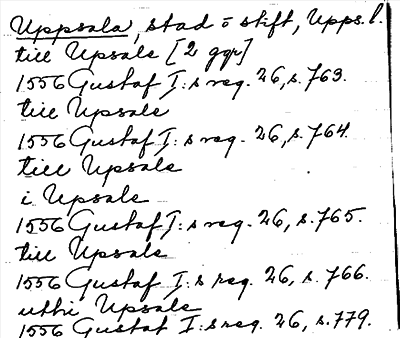 Uppsala, stad o stift, Upps.l.
till Upsale [2 ggr]
1556 Gustaf I:s reg. 26, s. 763.
till Upsale
1556 Gustaf I:s reg. 26, s. 764.
till Upsale
i Upsale
1556 Gustaf I:s reg. 26, s. 765.
till Upsale
1556 Gustaf I:s reg. 26, s. 766.
uthi Upsale
1556 Gustaf I:s reg. 26, s. 779.